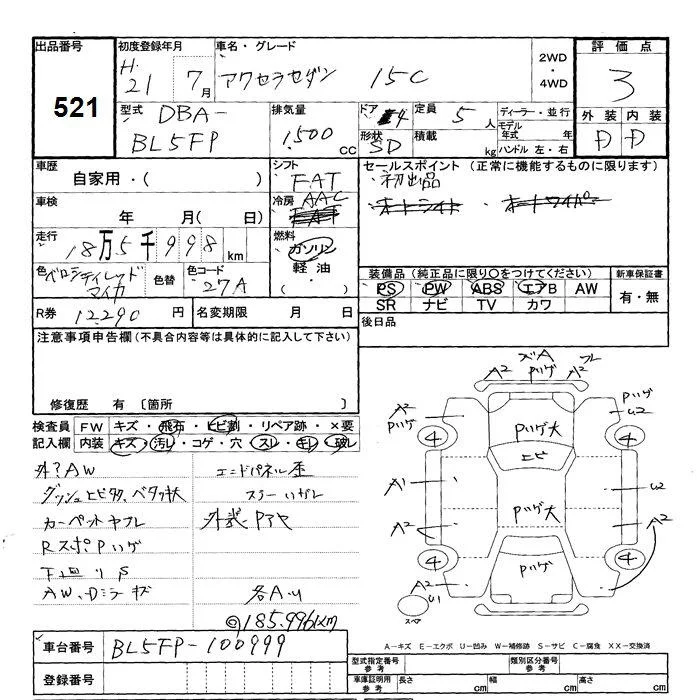 出品番号 初度登録年月 車名・グレード 2WD・4WD 評価点
521 H.21年7月 アクセラセダン 15C 3
型式 DBA-BL5FP 排気量 1,500 cc ドア 4 定員 5人 ディーラー・並行 外装 内装
形状 SD 積載 kg モデル年式 年 ハンドル 左・右 D D
車歴 自家用・( ) シフト FAT セールスポイント (正常に機能するものに限ります)
車検 年 月( 日) 冷房 AAC ・初出品
走行 18万5千998km 燃料 ガソリン 軽油・( )
色 ベロシティレッドマイカ 色替 色コード 27A 装備品 (純正品に限り○をつけてください) 新車保証書
PS PW ABS エアB AW 有・無
SR ナビ TV カワ
R券 12,290 円 名変期限 月 日 後日品
注意事項申告欄 (不具合内容等は具体的に記入して下さい)
修復歴 有 〔箇所 〕
検査員記入欄 FW キズ・飛石・ヒビ割・リペア跡・×要
内装 キズ・汚れ・コゲ・穴・スレ・キレ・破レ
外?AW エンドパネル歪
ダッシュヒビ多、ベタツキ大
カーペットヤブレ 外装Pアヤ
RスポPハゲ
下廻りS
AW、Dミラーキズ 各AU
◎185,996km
車台番号 BL5FP-100999
登録番号
A2 ズA Pハゲ A2 フレ
A2 Pハゲ Pハゲ U2
4 Pハゲ大 4
エビ
A1 U2
Pハゲ大
A2 A2
4 Pハゲ 4
A2 U1
スペア
A-キズ E-エクボ U-凹み W-補修跡 S-サビ C-腐食 XX-交換済
型式指定番号 参考 類別区分番号 参考
車庫証明用 参考 長さ cm 幅 cm 高さ cm